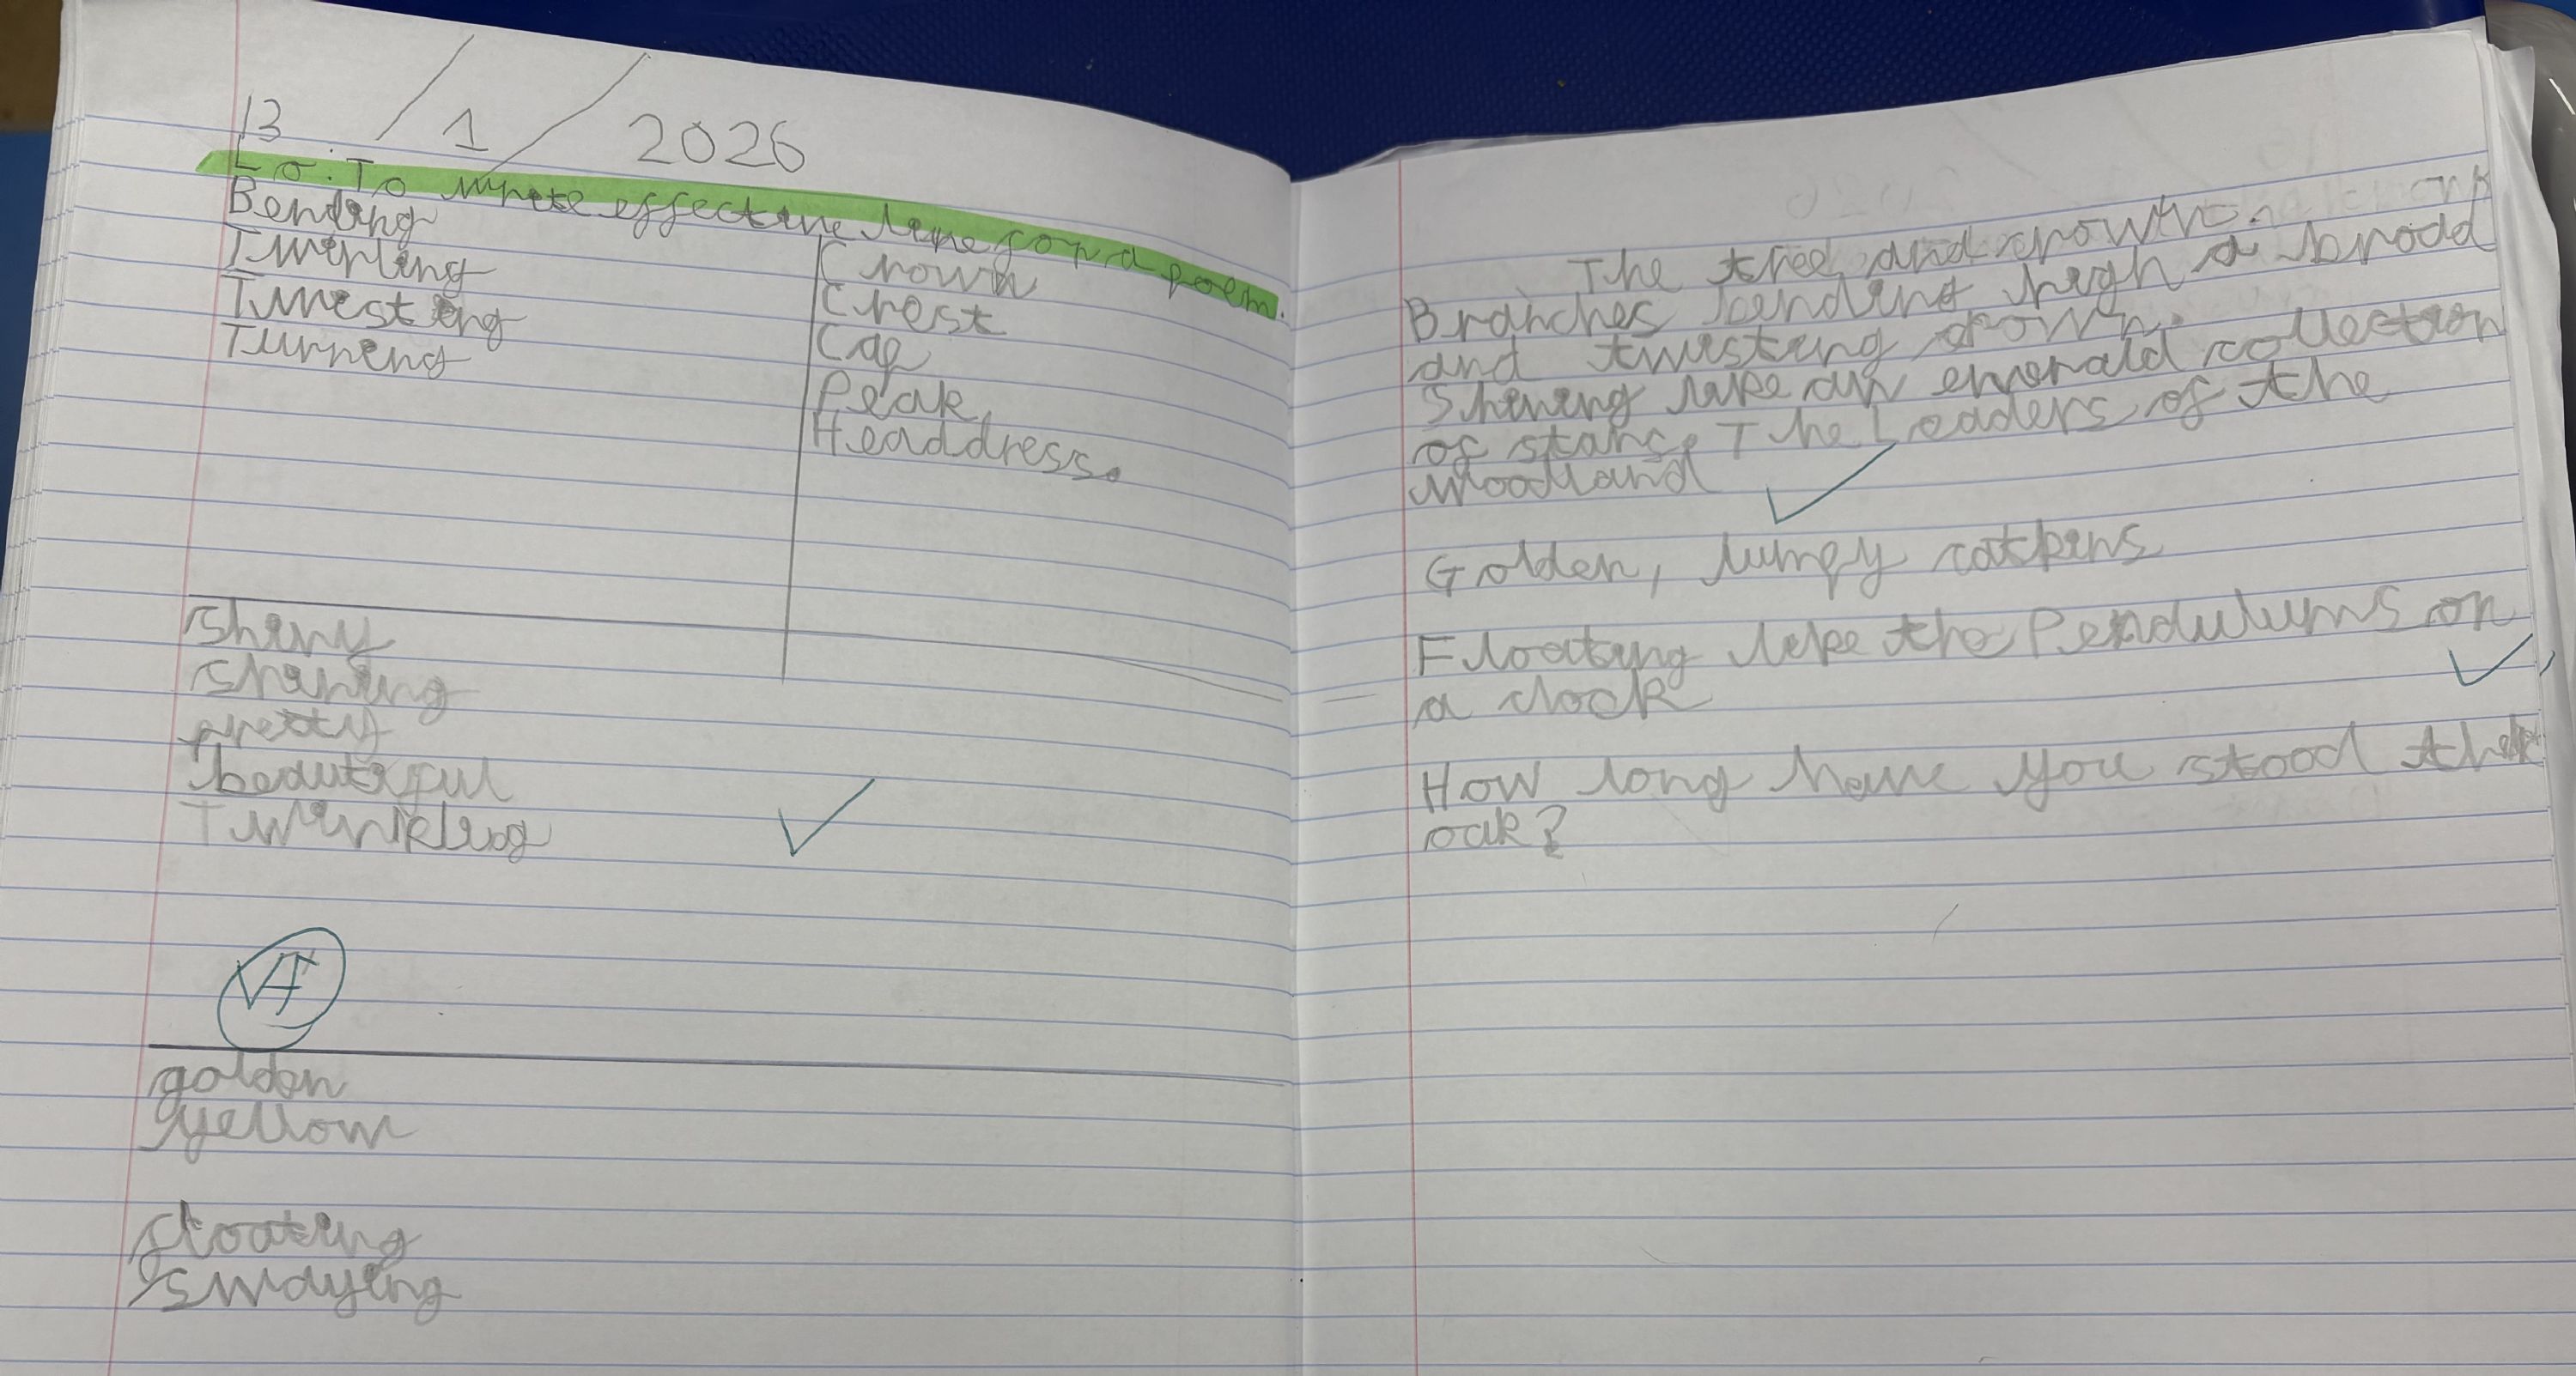 13/1/2026
Lo: To write effective line for a poem.
Bending
Twirling
Twisting
Turning
Crown
Crest
Cap
Peak
Headdress.
shiny
shining
pretty
beautiful
Twinkling
VF
golden
yellow
floating
swaying
The tree and crown.
Branches bending high a broad
and twisting down.
Shining like an emerald collection
of stars. The Leaders of the
woodland
Golden, lumpy catkins
Floating like the Pendulums on
a clock
How long have you stood
oak?